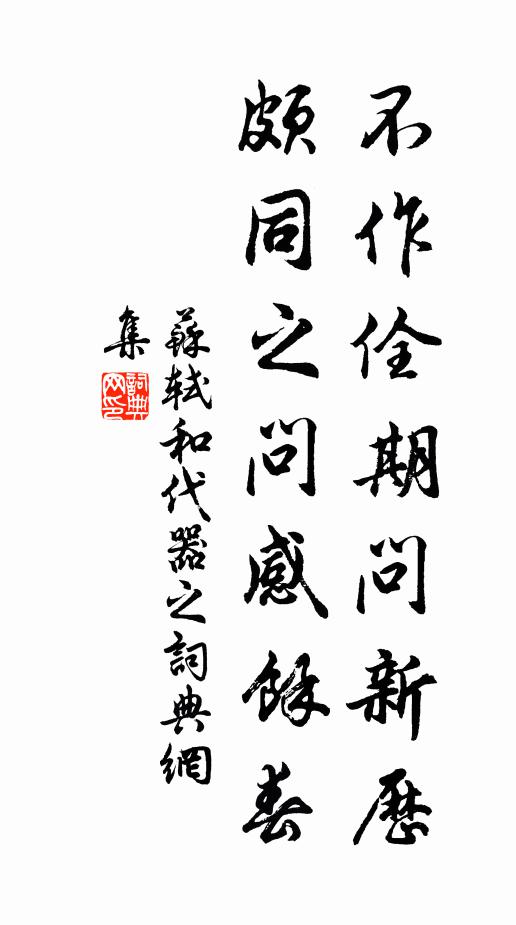 不作佺期問新歷
頗同之問感餘春
蘇軾和代器之詞典網
集
詞典
网印